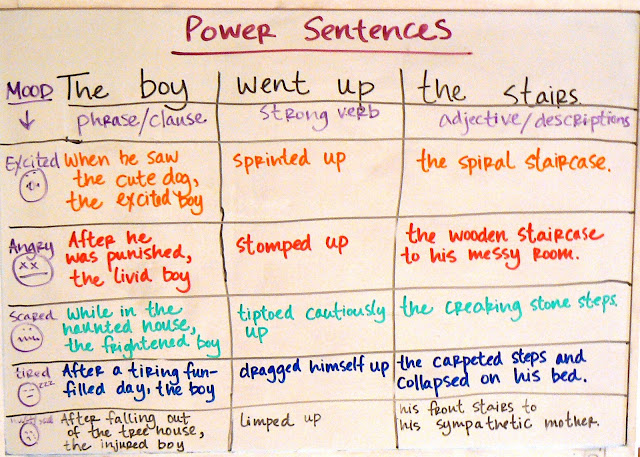 Power Sentences
MOOD The boy went up the stairs.
phrase/clause strong verb adjective/descriptions
Excited When he saw
the cute dog,
the excited boy
sprinted up
the spiral staircase.
Angry
After he
was punished,
the livid boy
stomped up
the wooden staircase
to his messy room.
Scared
While in the
haunted house,
the frightened boy
tiptoed cautiously
up
the creaking stone steps.
tired
zzz
After a tiring fun-
filled day, the boy
dragged himself up
the carpeted steps and
collapsed on his bed.
After falling out
of the tree house,
the injured boy
limped up
his front stairs to
his sympathetic mother.